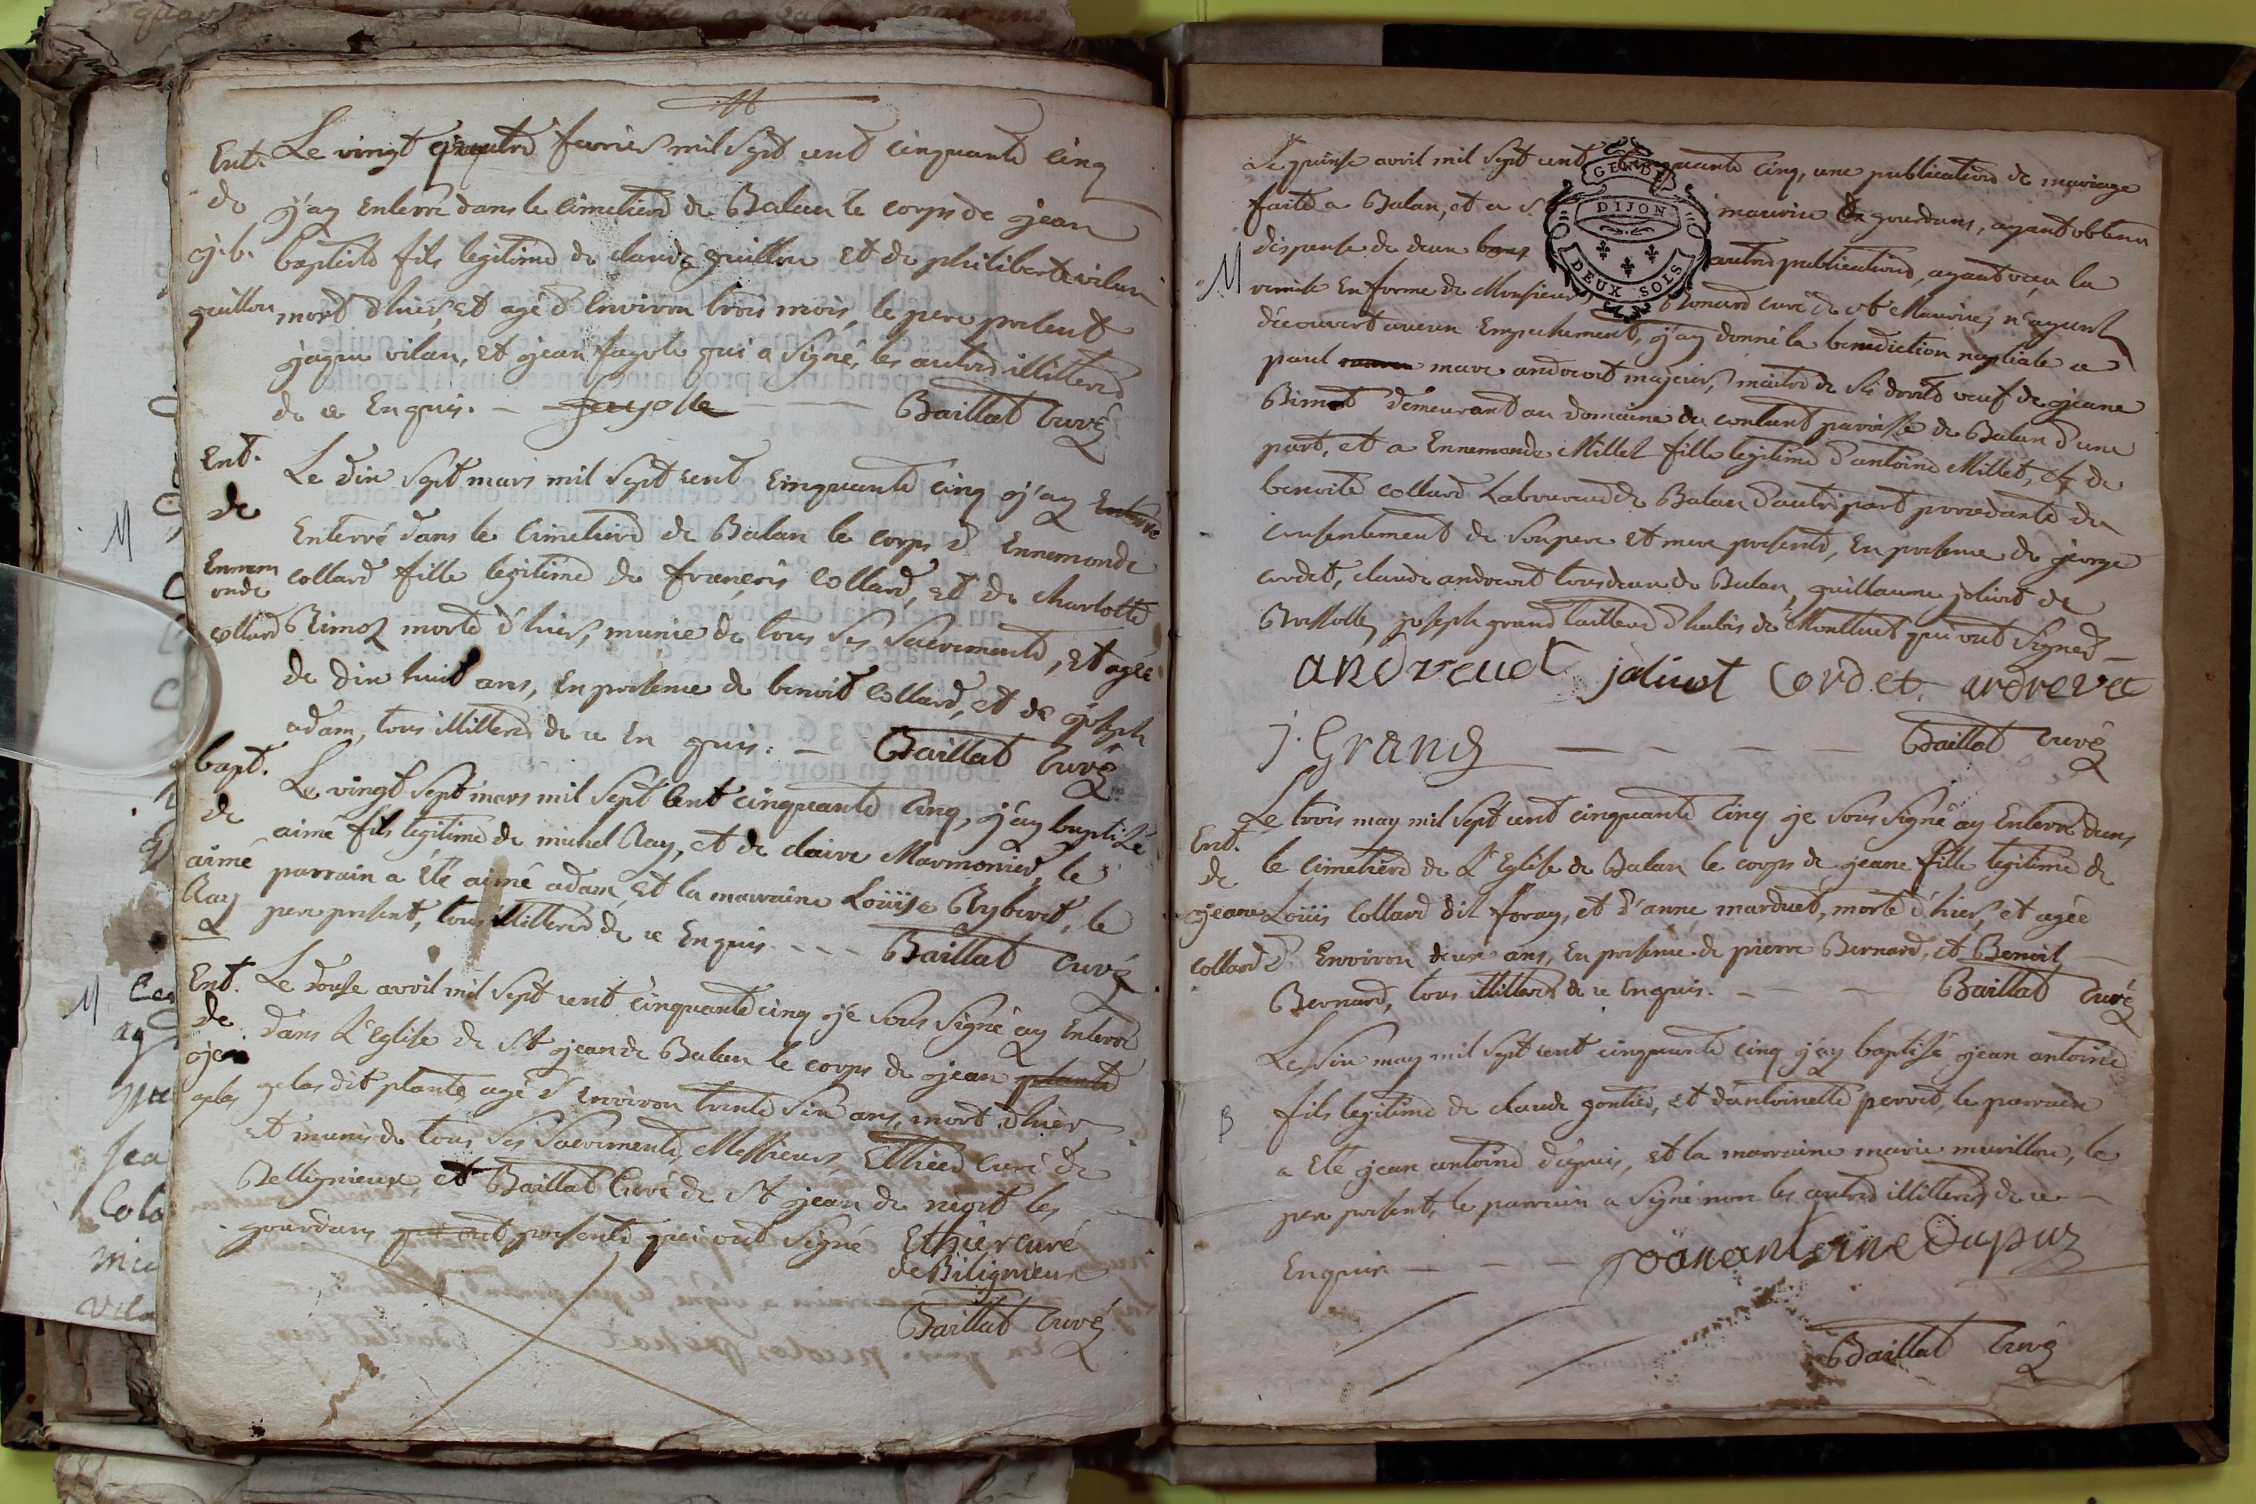 Ent. Le vingt quatre fevrier mil sept cent cinquante cinq
de j'ay Enterré dans le cimetiere de Balan le corps de jean
j.b. baptiste fils legitime de claude guillon et de philiberte vilan
guillon mort d'hier, et agé d'Environ trois mois, le pere present
jaque vilan, et jean fayole qui a signé, les autres illitterés
de ce Enquis. — fayolle — Baillat Curé
Ent. Le dix sept mars mil sept cent cinquante cinq j'ay Enterré
de Enterré dans le Cimetiere de Balan le corps d'Ennemonde
Ennem
onde collard fille legitime de françois Collard, et de charlotte
collard Rimoz morte d'hier, munie de tous ses sacrements, et agée
de dix huit ans, En presence de benoit Collard, et de joseph
adam, tous illitterés de ce En quis. — Baillat Curé
bapt. Le vingt sept mars mil sept Cent cinquante Cinq, j'ay baptisé
de aimé fils legitime de michel Ray, et de claire Marmonier, le
aimé parrain a été aimé adam, et la marraine Loüise Ryberet, le
Ray pere present, tous illitterés de ce Enquis - - - Baillat Curé
Ent. Le douse avril mil sept cent cinquante cinq je sous signé ay Enterré
de dans L'Eglise de St jean de Balan le corps de jean plante
jean
gelas gelas dit plante agé d'Environ trente six ans, mort d'hier
et munis de tous ses sacrements, Messieurs Ethier Curé de
Bellignieux, et Baillat Curé de St jean de niort les
gourdans qui ont presents qui ont signé Ethier curé
de Biligneux
Baillat Curé
Le quinse avril mil sept cent cinquante cinq, une publication de mariage
faite a Balan, et a St maurice de gourdans, ayant obtenu
dispense de deux bans autres publications, ayant reçu la
M remise En forme de Monsieur Bonard curé de st Maurice, n'ayant
découvert aucun Empechement, j'ay donné la benediction nuptiale a
paul marc andrevet majeur, maitre de ses droits veuf de jeane
Rimot demeurant au domaine du contant paroisse de Balan d'une
part, et a Ennemonde Millet fille legitime d'antoine Millet, et de
benoite collard Laboureur de Balan d'autre part procedante du
consentement de son pere et mere presents, En presence de george
cordet, claude andrevet tous deux de Balan, guillaume jolivet de
Bressolle, joseph grand tailleur d'habis de Montluel qui ont signés —
andrevet jolivet Cordet andrevet
j. Grand — — — — Baillat Curé
Le trois may mil sept cent cinquante cinq je sous signé ay Enterré dans
Ent. le Cimetiere de L'Eglise de Balan le corps de jeane fille legitime de
de
jeane Loüis Collard dit foray, et d'anne marduet, morte d'hier, et agée
collard d'Environ deux ans, En presence de pierre Bernard, et Benoit
Bernard, tous illitterés de ce Enquis. — — Baillat Curé
Le six may mil sept cent cinquante cinq j'ay baptisé jean antoine
B fils legitime de claude gontier, et d'antoinette perret, le parrain
a Eté jean antoine dupuis, et la marraine marie murillon, le
pere present, le parrain a signé non les autres illitterés de ce
Enquis — — — joan antoine Dupuz
Baillat Curé
GEN. DE
DIJON
DEUX SOLS